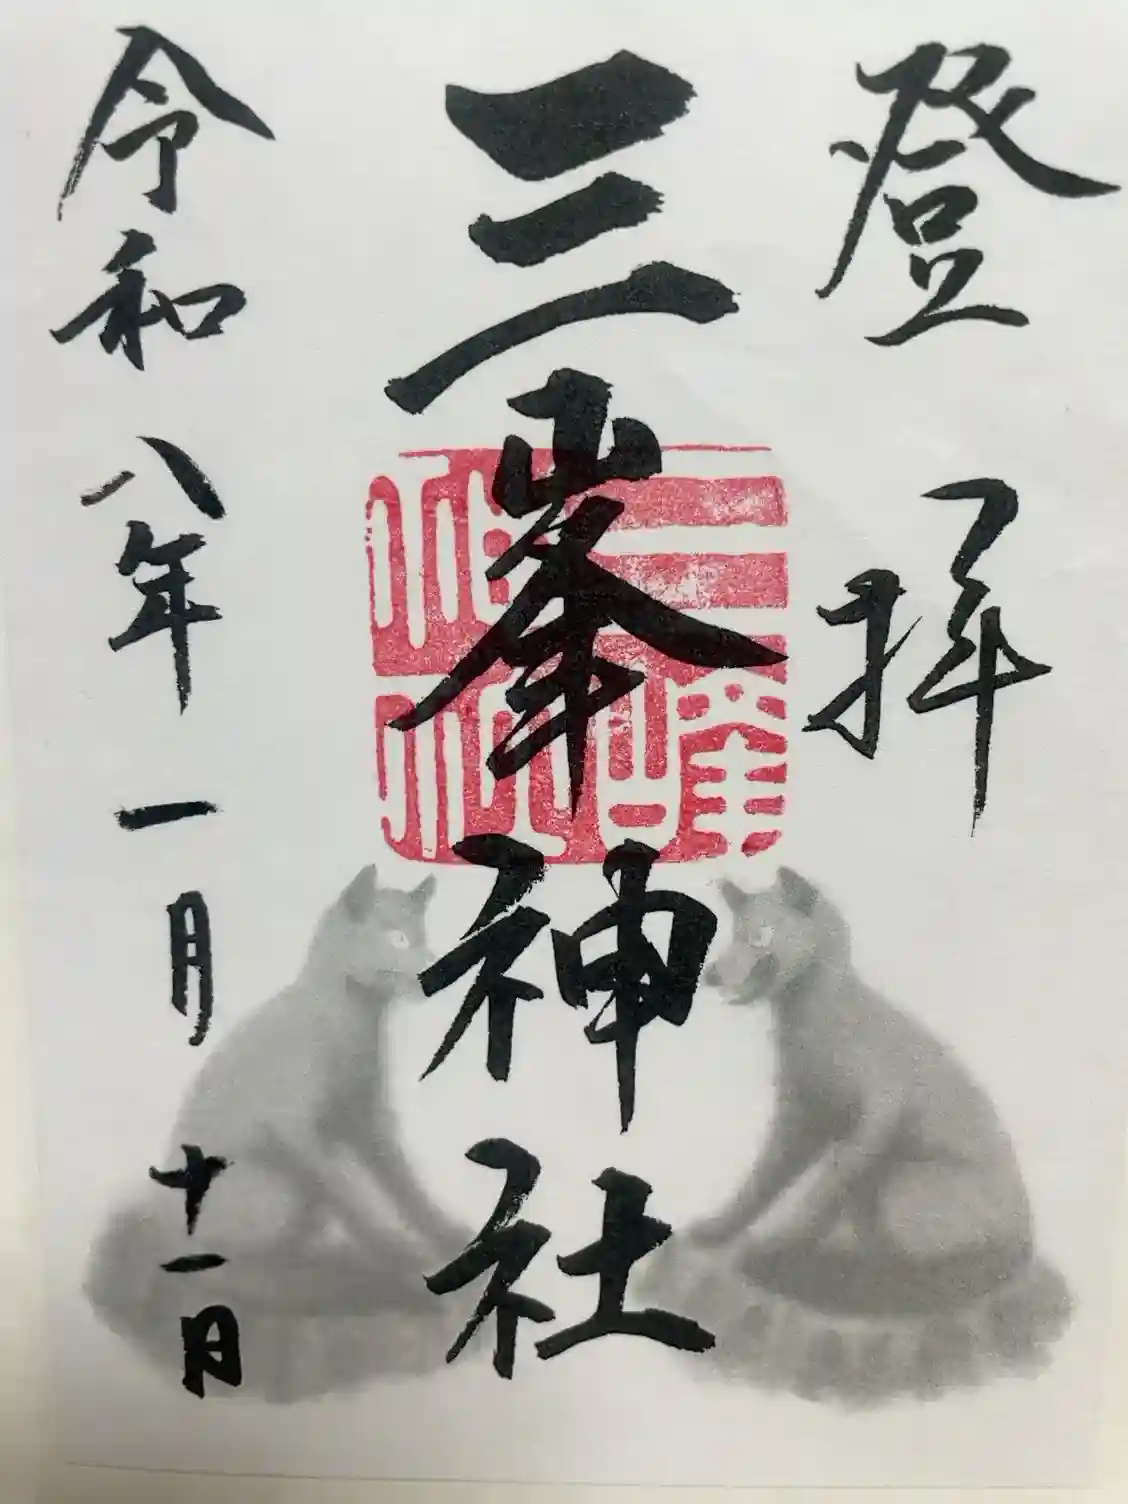 登拝
三峯神社
三峯神社
令和八年一月十一日